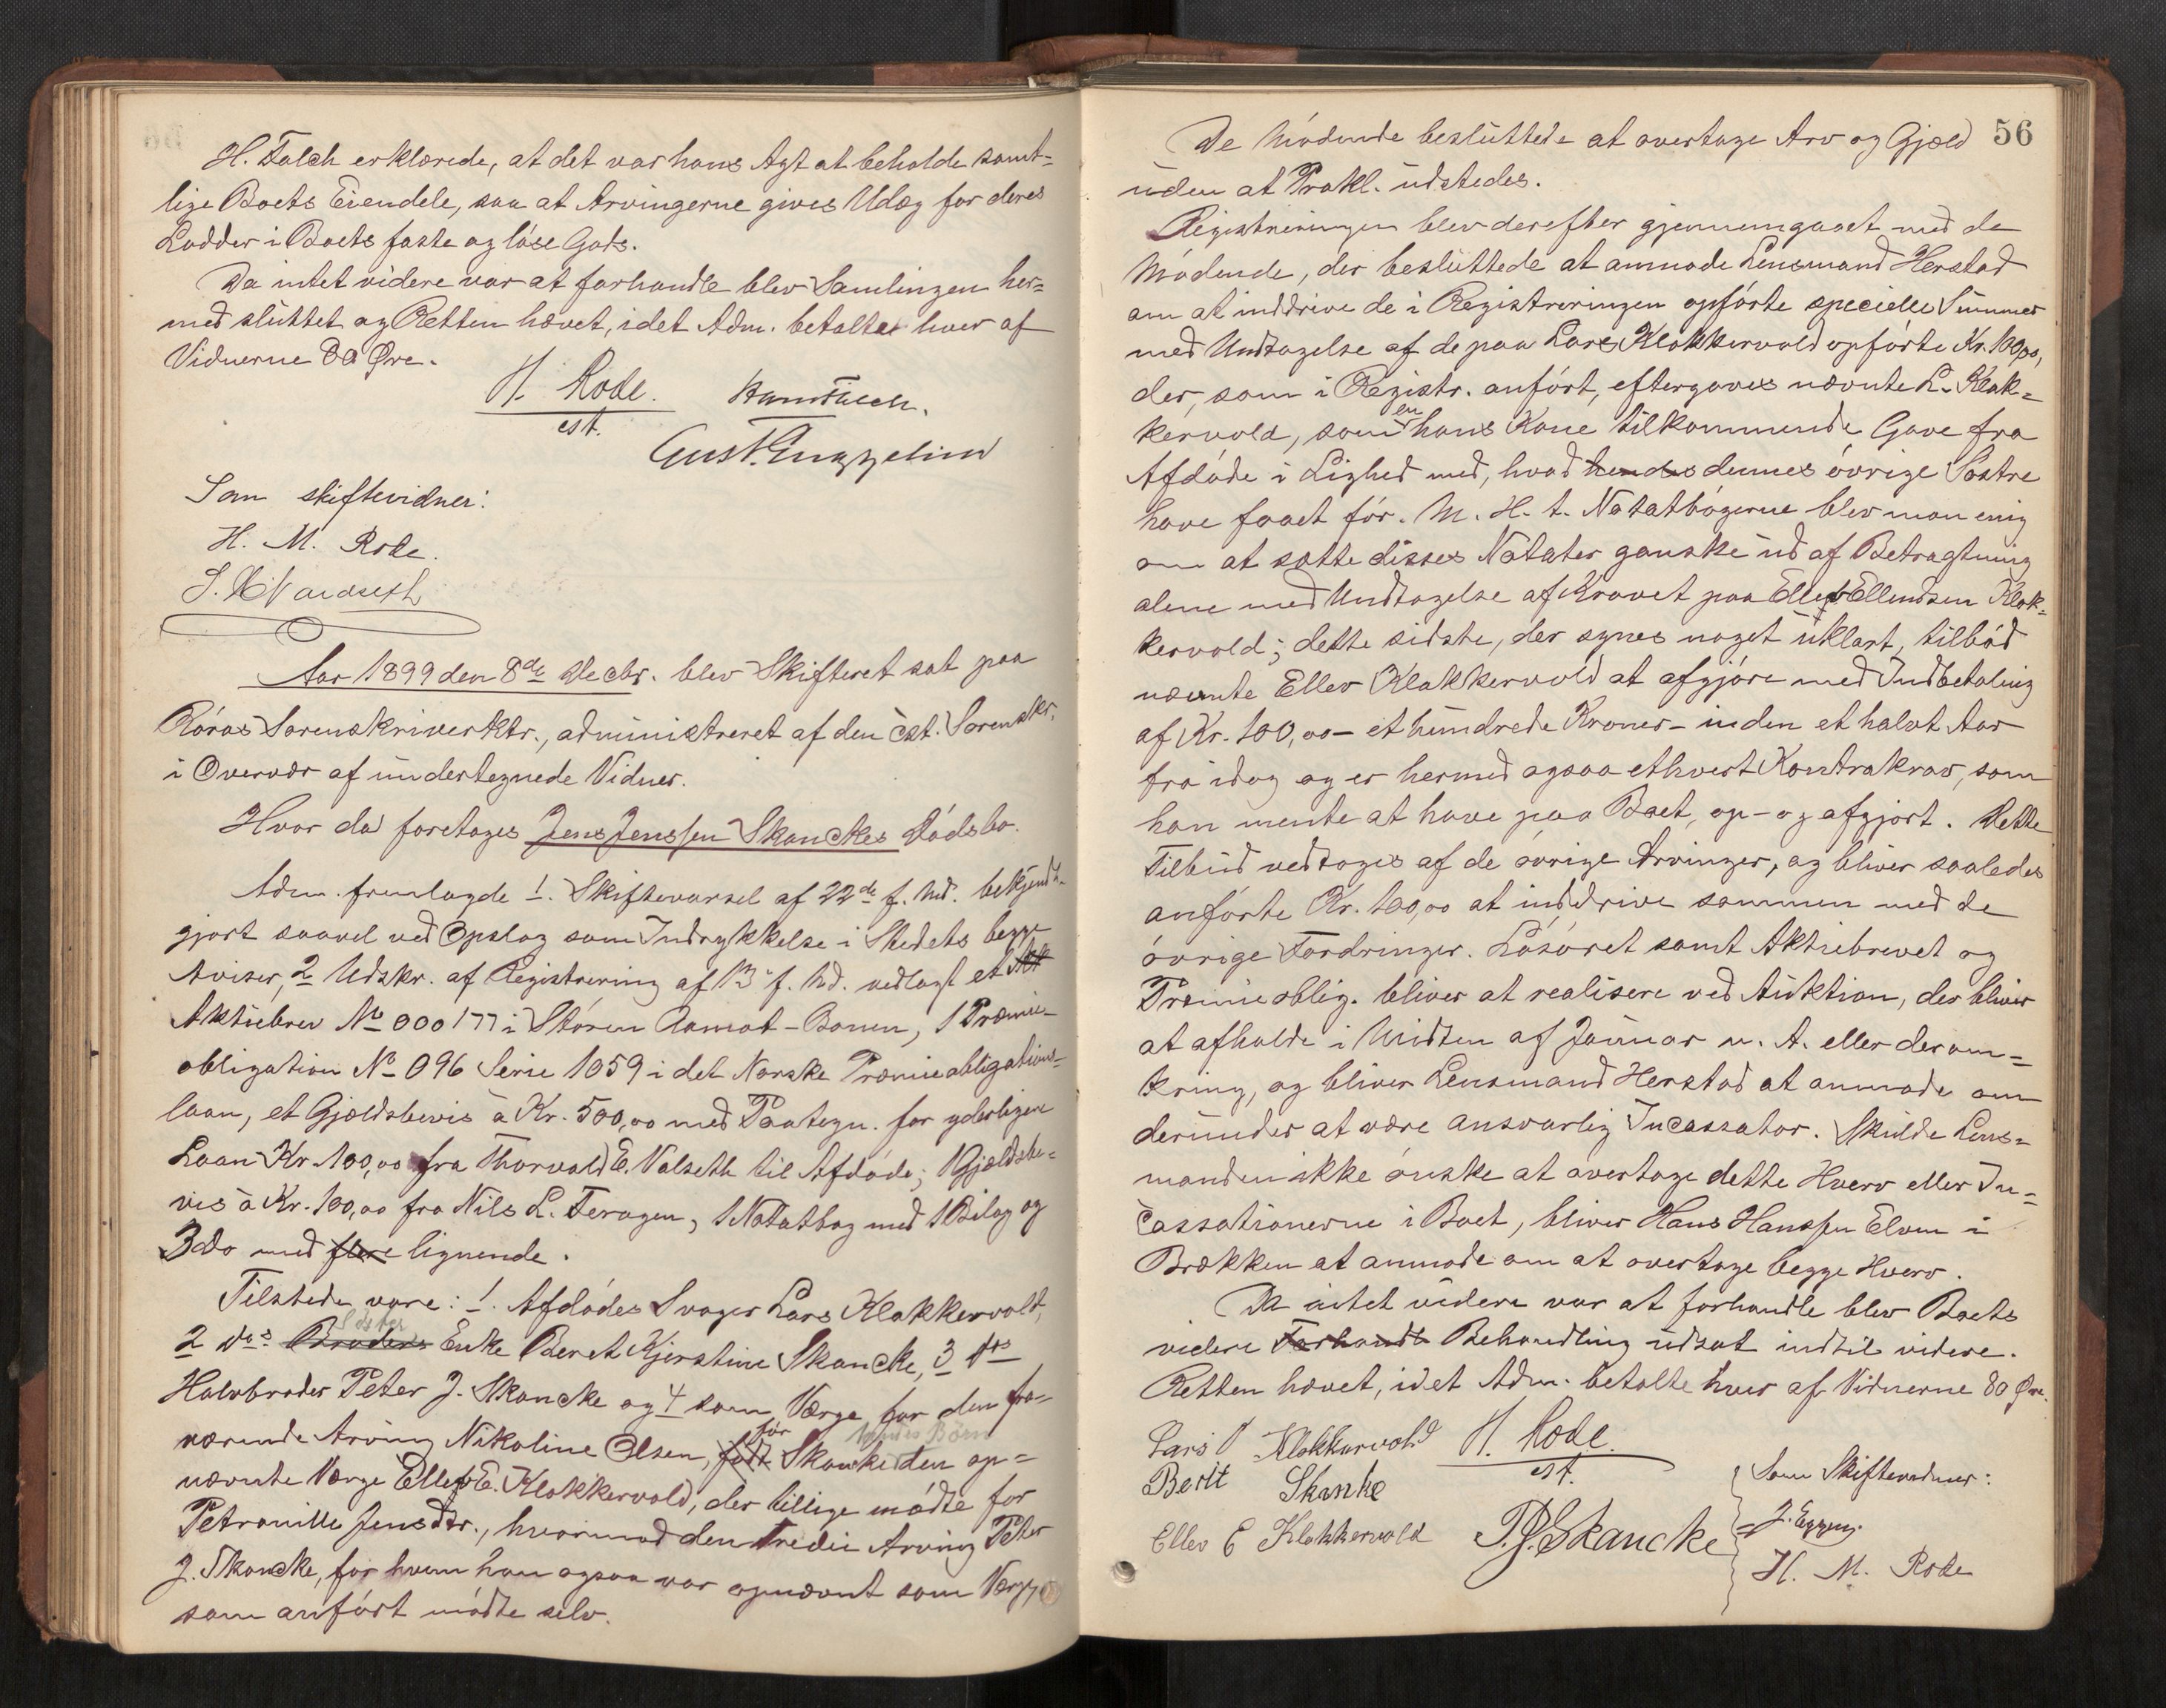 H. Falch erklærede, at det var hans Agt at beholde samt=
lige Boets Eiendele, saa at Arvingerne gives Udlæg for deres
Lodder i Boets faste og løse Gods.
Da intet videre var at forhandle blev Samlingen her=
med sluttet og Retten hævet, idet Adm. betalte hver af
Vidnerne 80 Øre.
H. Rode.
cst.
Som skiftevidner:
H. M. Rode.
Aar 1899 den 8de Decbr. blev Skifteret sat paa
Røros Sorenskriverktr., administreret af den cst. Sorenskr.
i Overvær af undertegnede Vidner.
Hvor da foretoges Jens Jenssen Skanckes Dødsbo.
Adm. fremlagde 1. Skiftevarsel af 22de f. Md. bekjendt-
gjort saavel ved Opslag som Indrykkelse i Stedets begge
Aviser, 2 Udskr. af Registrering af 13 f. Md. vedlagt et
Aktiebrev No 000177 i Støren Aamot-Banen, 1 Præmie-
obligation No 096 Serie 1059 i det Norske Præmieobligations-
laan, et Gjældsbevis à Kr. 500,00 med Paategn. for yderligere
Laan Kr. 100,00 fra Thorvald E. Valseth til Afdøde; 1 Gjældsbe-
vis à Kr. 100,00 fra Nils L. Feragen, 1 Notatbog med 1 Bilag og
3 do med flere lignende.
Tilstede vare: 1. Afdødes Svoger Lars Klokkervold,
Søster
2 dos Broders Enke Beret Kjerstine Skancke, 3 dos
Halvbroder Peter J. Skancke og 4 som Værge for den fra-
før hendes Børn
værende Arving Nikoline Olsen, født Skanke den op=
nævnte Værge Ellev E. Klokkervold, der tillige mødte for
Petronille Jensdtr., hvorimod den tredie Arving Peter
J. Skancke, for hvem han ogsaa var opnævnt som Værge,
som anført mødte selv.
56
De Mødende besluttede at overtage Arv og Gjæld
uden at Prokl. udstedes.
Registreringen blev derefter gjennemgaaet med de
Mødende, der besluttede at anmode Lensmand Herstad
om at inddrive de i Registreringen opførte specielle Summer
med Undtagelse af de paa Lars Klokkervold opførte Kr. 100,00,
der, som i Registr. anført, eftergaves nævnte L. Klok=
en
kervold, som hans Kone tilkommende Gave fra
Afdøde i Lighed med, hvad hendes dennes øvrige Søstre
have faaet før. M. H. t. Notatbøgerne blev man enig
om at sætte disses Notater ganske ud af Betragtning
alene med Undtagelse af Kravet paa Ellev Ellevsen Klok=
kervold; dette sidste, der synes noget uklart, tilbød
nævnte Ellev Klokkervold at afgjøre med Indbetaling
af Kr. 100,00 – et hundrede Kroner – inden et halvt Aar
fra idag og er hermed ogsaa ethvert Kontrakrav, som
han mente at have paa Boet, op- og afgjort. Dette
Tilbud vedtoges af de øvrige Arvinger, og bliver saaledes
anførte Kr. 100,00 at inddrive sammen med de
øvrige Fordringer. Løsøret samt Aktiebrevet og
Præmieoblig. bliver at realisere ved Auktion, der bliver
at afholde i Midten af Januar n. A. eller derom=
kring, og bliver Lensmand Herstad at anmode om
derunder at være ansvarlig Incassator. Skulde Lens=
manden ikke ønske at overtage dette Hverv eller In=
cassationerne i Boet, bliver Hans Hanssen Elven i
Brækken at anmode om at overtage begge Hverv.
Da intet videre var at forhandle blev Boets
videre Forhandl Behandling udsat indtil videre.
Retten hævet, idet Adm. betalte hver af Vidnerne 80 Øre.
Lars Klokkervold H. Rode.
cst.
Berit Skanke
Ellev E Klokkervold P. J. Skancke
Som Skiftevidner:
J. Eggen.
H. M. Rode